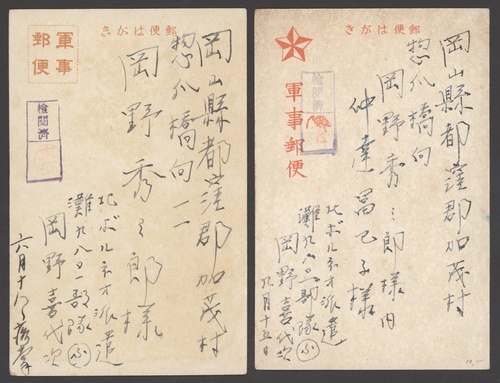 郵便はがき
軍事
郵便
檢閲濟
岡山縣都窪郡加茂村
惣爪橋向
岡野秀三郎様
北ボルネオ派遣
灘九八〇一部隊 ふ
岡野喜代次
六月十八日
郵便はがき
軍事郵便
檢閲濟
岡山縣都窪郡加茂村
惣爪橋向
岡野秀三郎様内
仲達冨巳子様
北ボルネオ派遣
部隊 ふ
岡野喜代次
九月十五日